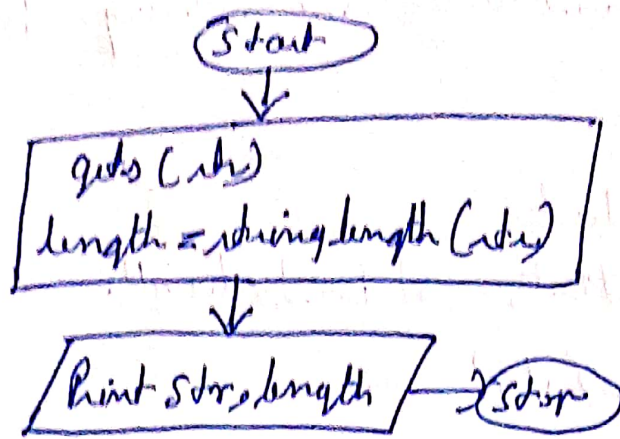 Start
gets (str)
length = string length (str)
Print str, length
stop